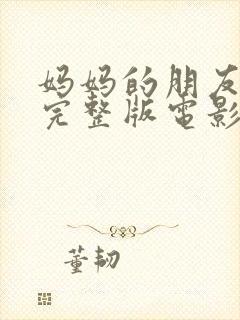 妈妈的朋友
完整版电影
董韧